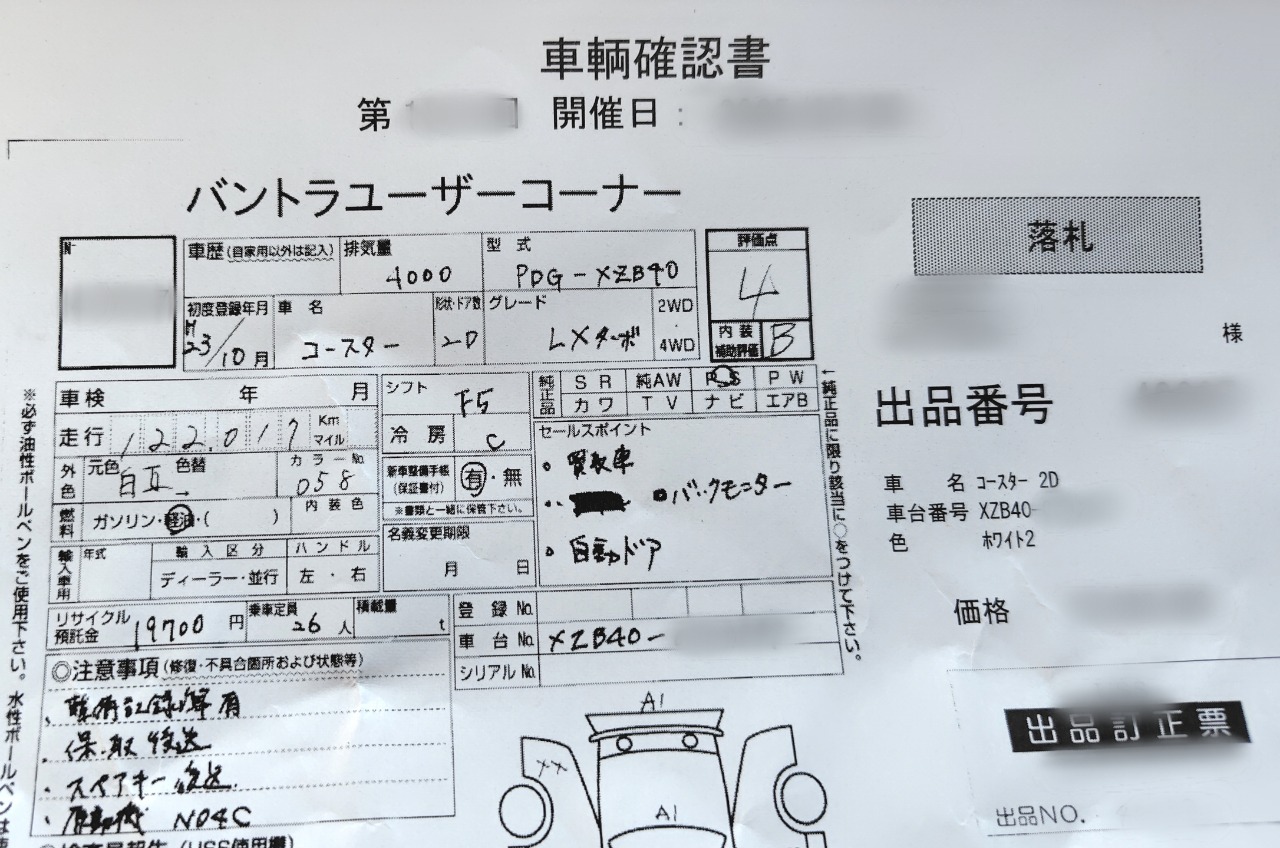 車輌確認書
第 開催日：
バントラユーザーコーナー
落札
様
出品番号
車 名 コースター 2D
車台番号 XZB40-
色 ホワイト2
価格
出品訂正票
出品NO.
車歴(自家用以外は記入)
排気量 4000
型式 PDG-XZB40
評価点 4
内装補助評価 B
初度登録年月 H23/10月
車名 コースター
形状・ドア数 2D
グレード LXターボ
2WD
4WD
車検 年 月
走行 122,017 Km マイル
外色 元色 白Ⅱ 色替 →
カラーNo. 058
燃料 ガソリン・軽油・( )
内装色
輸入車用 年式
輸入区分 ディーラー・並行
ハンドル 左・右
シフト F5
冷房 C
新車整備手帳(保証書付) 有・無
※書類と一緒に保管下さい。
名義変更期限 月 日
純正品 SR 純AW PS PW
カワ TV ナビ エアB
←純正品に限り該当に○をつけて下さい。
セールスポイント
・買取車
・バックモニター
・自動ドア
リサイクル預託金 19700円
乗車定員 26人
積載量 t
登録No.
車台No. XZB40-
シリアルNo.
◎注意事項(修復・不具合箇所および状態等)
・整備記録簿有
・保.取後送
・スペアキー後送
・原動機 N04C
(USS使用欄)
※必ず油性ボールペンをご使用下さい。水性ボールペンは
A1
××
A1